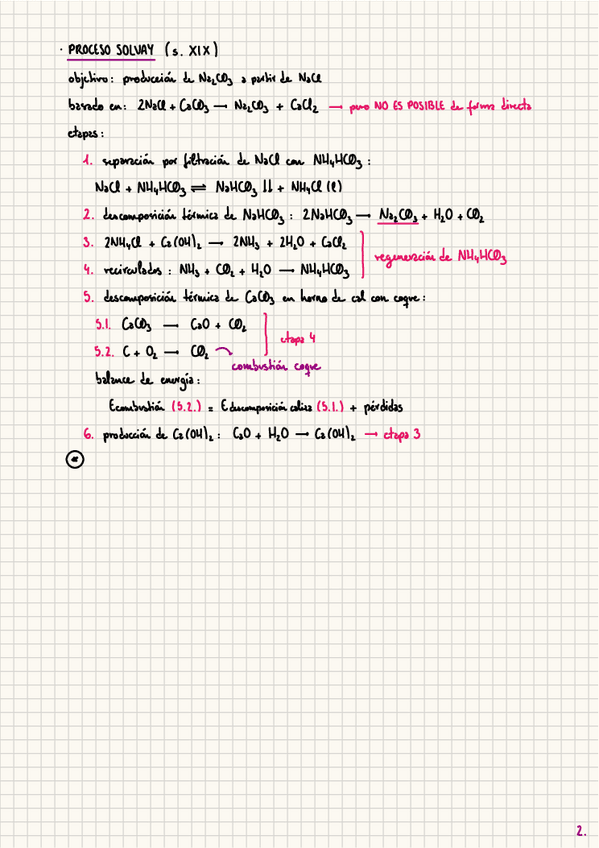 · PROCESO SOLVAY (s. XIX)
objetivo: producción de Na₂CO₃ a partir de NaCl
basado en: 2NaCl + CaCO₃ → Na₂CO₃ + CaCl₂ → pero NO ES POSIBLE de forma directa
etapas:
1. separación por filtración de NaCl con NH₄HCO₃:
NaCl + NH₄HCO₃ ⇌ NaHCO₃ ↓↓ + NH₄Cl (l)
2. descomposición térmica de NaHCO₃: 2NaHCO₃ → Na₂CO₃ + H₂O + CO₂
3. 2NH₄Cl + Ca(OH)₂ → 2NH₃ + 2H₂O + CaCl₂
4. recirculados: NH₃ + CO₂ + H₂O → NH₄HCO₃
regeneración de NH₄HCO₃
5. descomposición térmica de CaCO₃ en horno de cal con coque:
5.1. CaCO₃ → CaO + CO₂
5.2. C + O₂ → CO₂
etapa 4
combustión coque
balance de energía:
Ecombustión (5.2.) = Edescomposición caliza (5.1.) + pérdidas
6. producción de Ca(OH)₂: CaO + H₂O → Ca(OH)₂ → etapa 3
*
2.